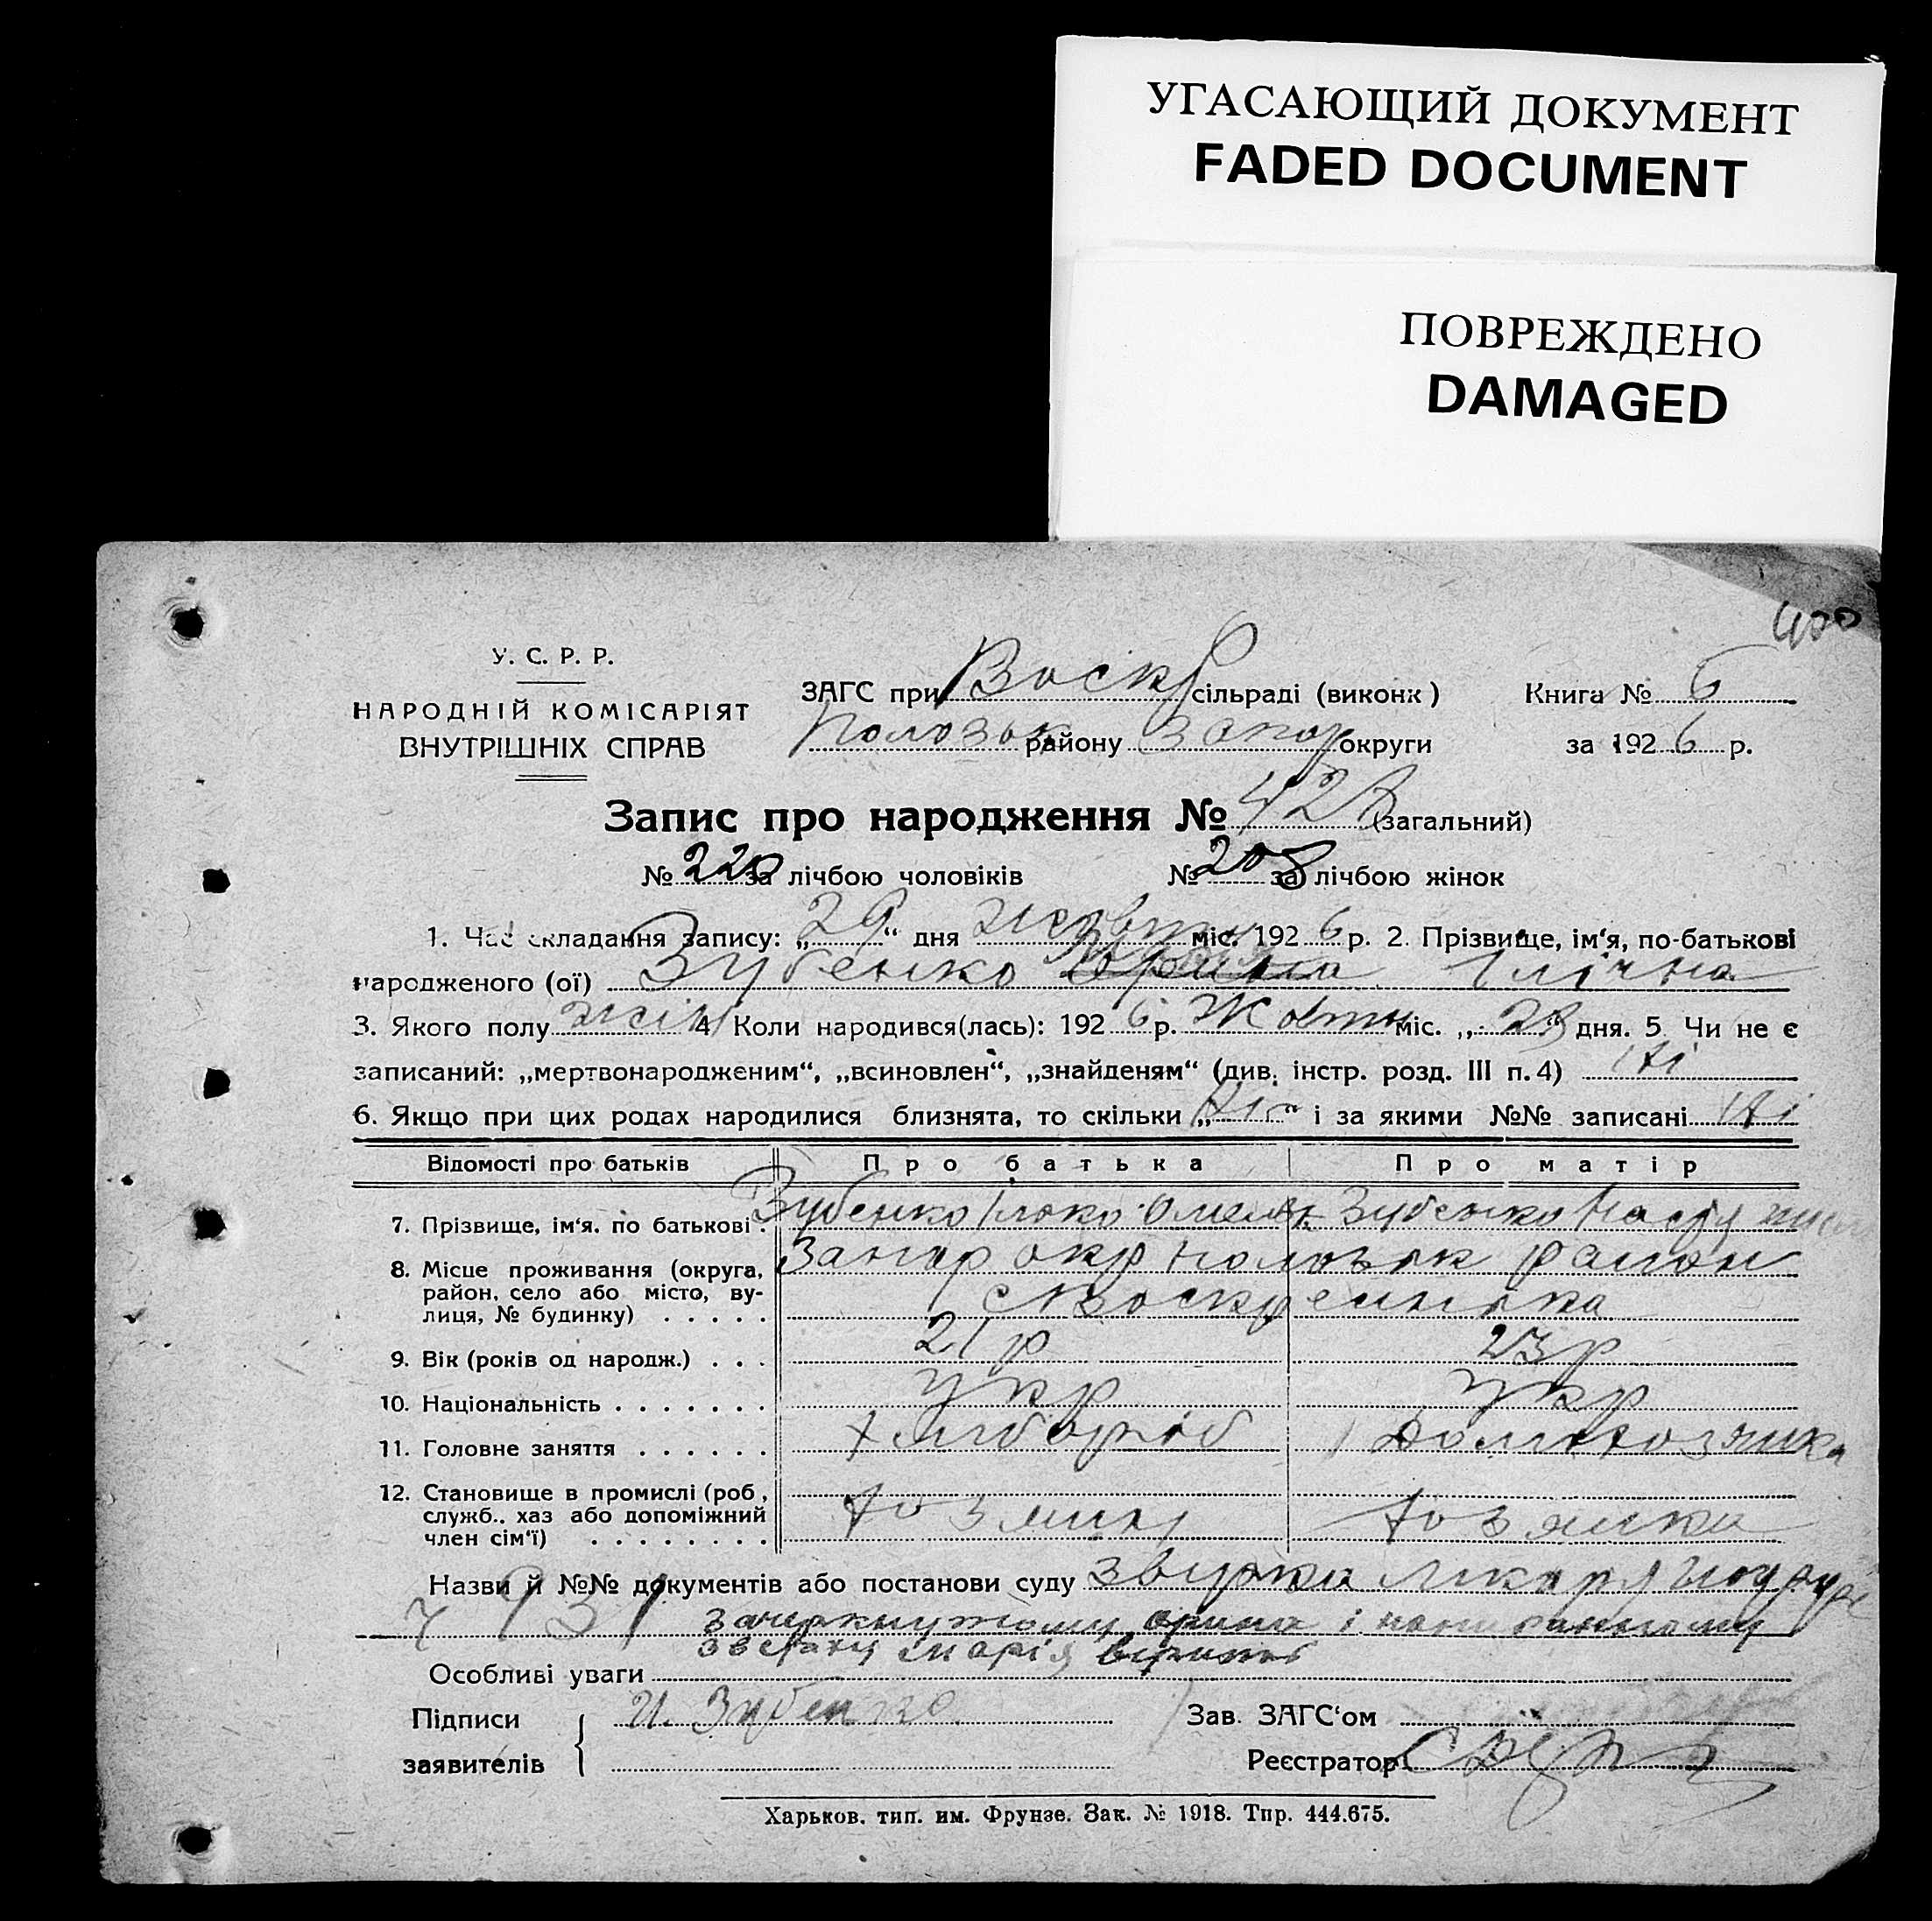 УГАСАЮЩИЙ ДОКУМЕНТ
FADED DOCUMENT
ПОВРЕЖДЕНО
DAMAGED
400
У. С. Р. Р.
НАРОДНІЙ КОМІСАРІЯТ
ВНУТРІШНІХ СПРАВ
ЗАГС при Воскр сільраді (виконк)
Пологськ району Запор округи
Книга № 6
за 1926 р.
Запис про народження № 428 (загальний)
№ 220 за лічбою чоловіків № 208 за лічбою жінок
1. Час складання запису: „29“ дня Жовтн міс. 1926 р. 2. Прізвище, ім‘я, по-батькові
народженого (ої) Зубенко Орина Ілічна
3. Якого полу жін 4 Коли народився(лась): 1926 р. Жовтн міс. „23“ дня. 5 Чи не є
записаний: „мертвонародженим“, „всиновлен“, „знайденям“ (див. інстр. розд. III п. 4) Ні
6. Якщо при цих родах народилися близнята, то скільки „Ні“ і за якими №№ записані Ні
Відомості про батьків Про батька Про матір
7. Прізвище, ім‘я, по батькові. Зубенко Омелян Зубенко Настя
8. Місце проживання (округа, район, село або місто, ву-лиця, № будинку) . . . . . Запор окр Пологськ район
с Воскресенька
9. Вік (років од народж.) . . . 21 р 23 р
10. Національність . . . . . . . Укр Укр
11. Головне заняття . . . . . . Хлібороб Домохозяйка
12. Становище в промислі (роб, служб.. хаз або допоміжний член сім‘ї) . . . . . . . . Хозяин Хозяйка
Назви й №№ документів або постанови суду
зачеркнутому орина і
марія вірить
Особливі уваги
Підписи заявителів { И. Зубенко
Зав. ЗАГС‘ом
Реєстратор
Харьков. тип. им. Фрунзе. Зак. № 1918. Тир. 444.675.